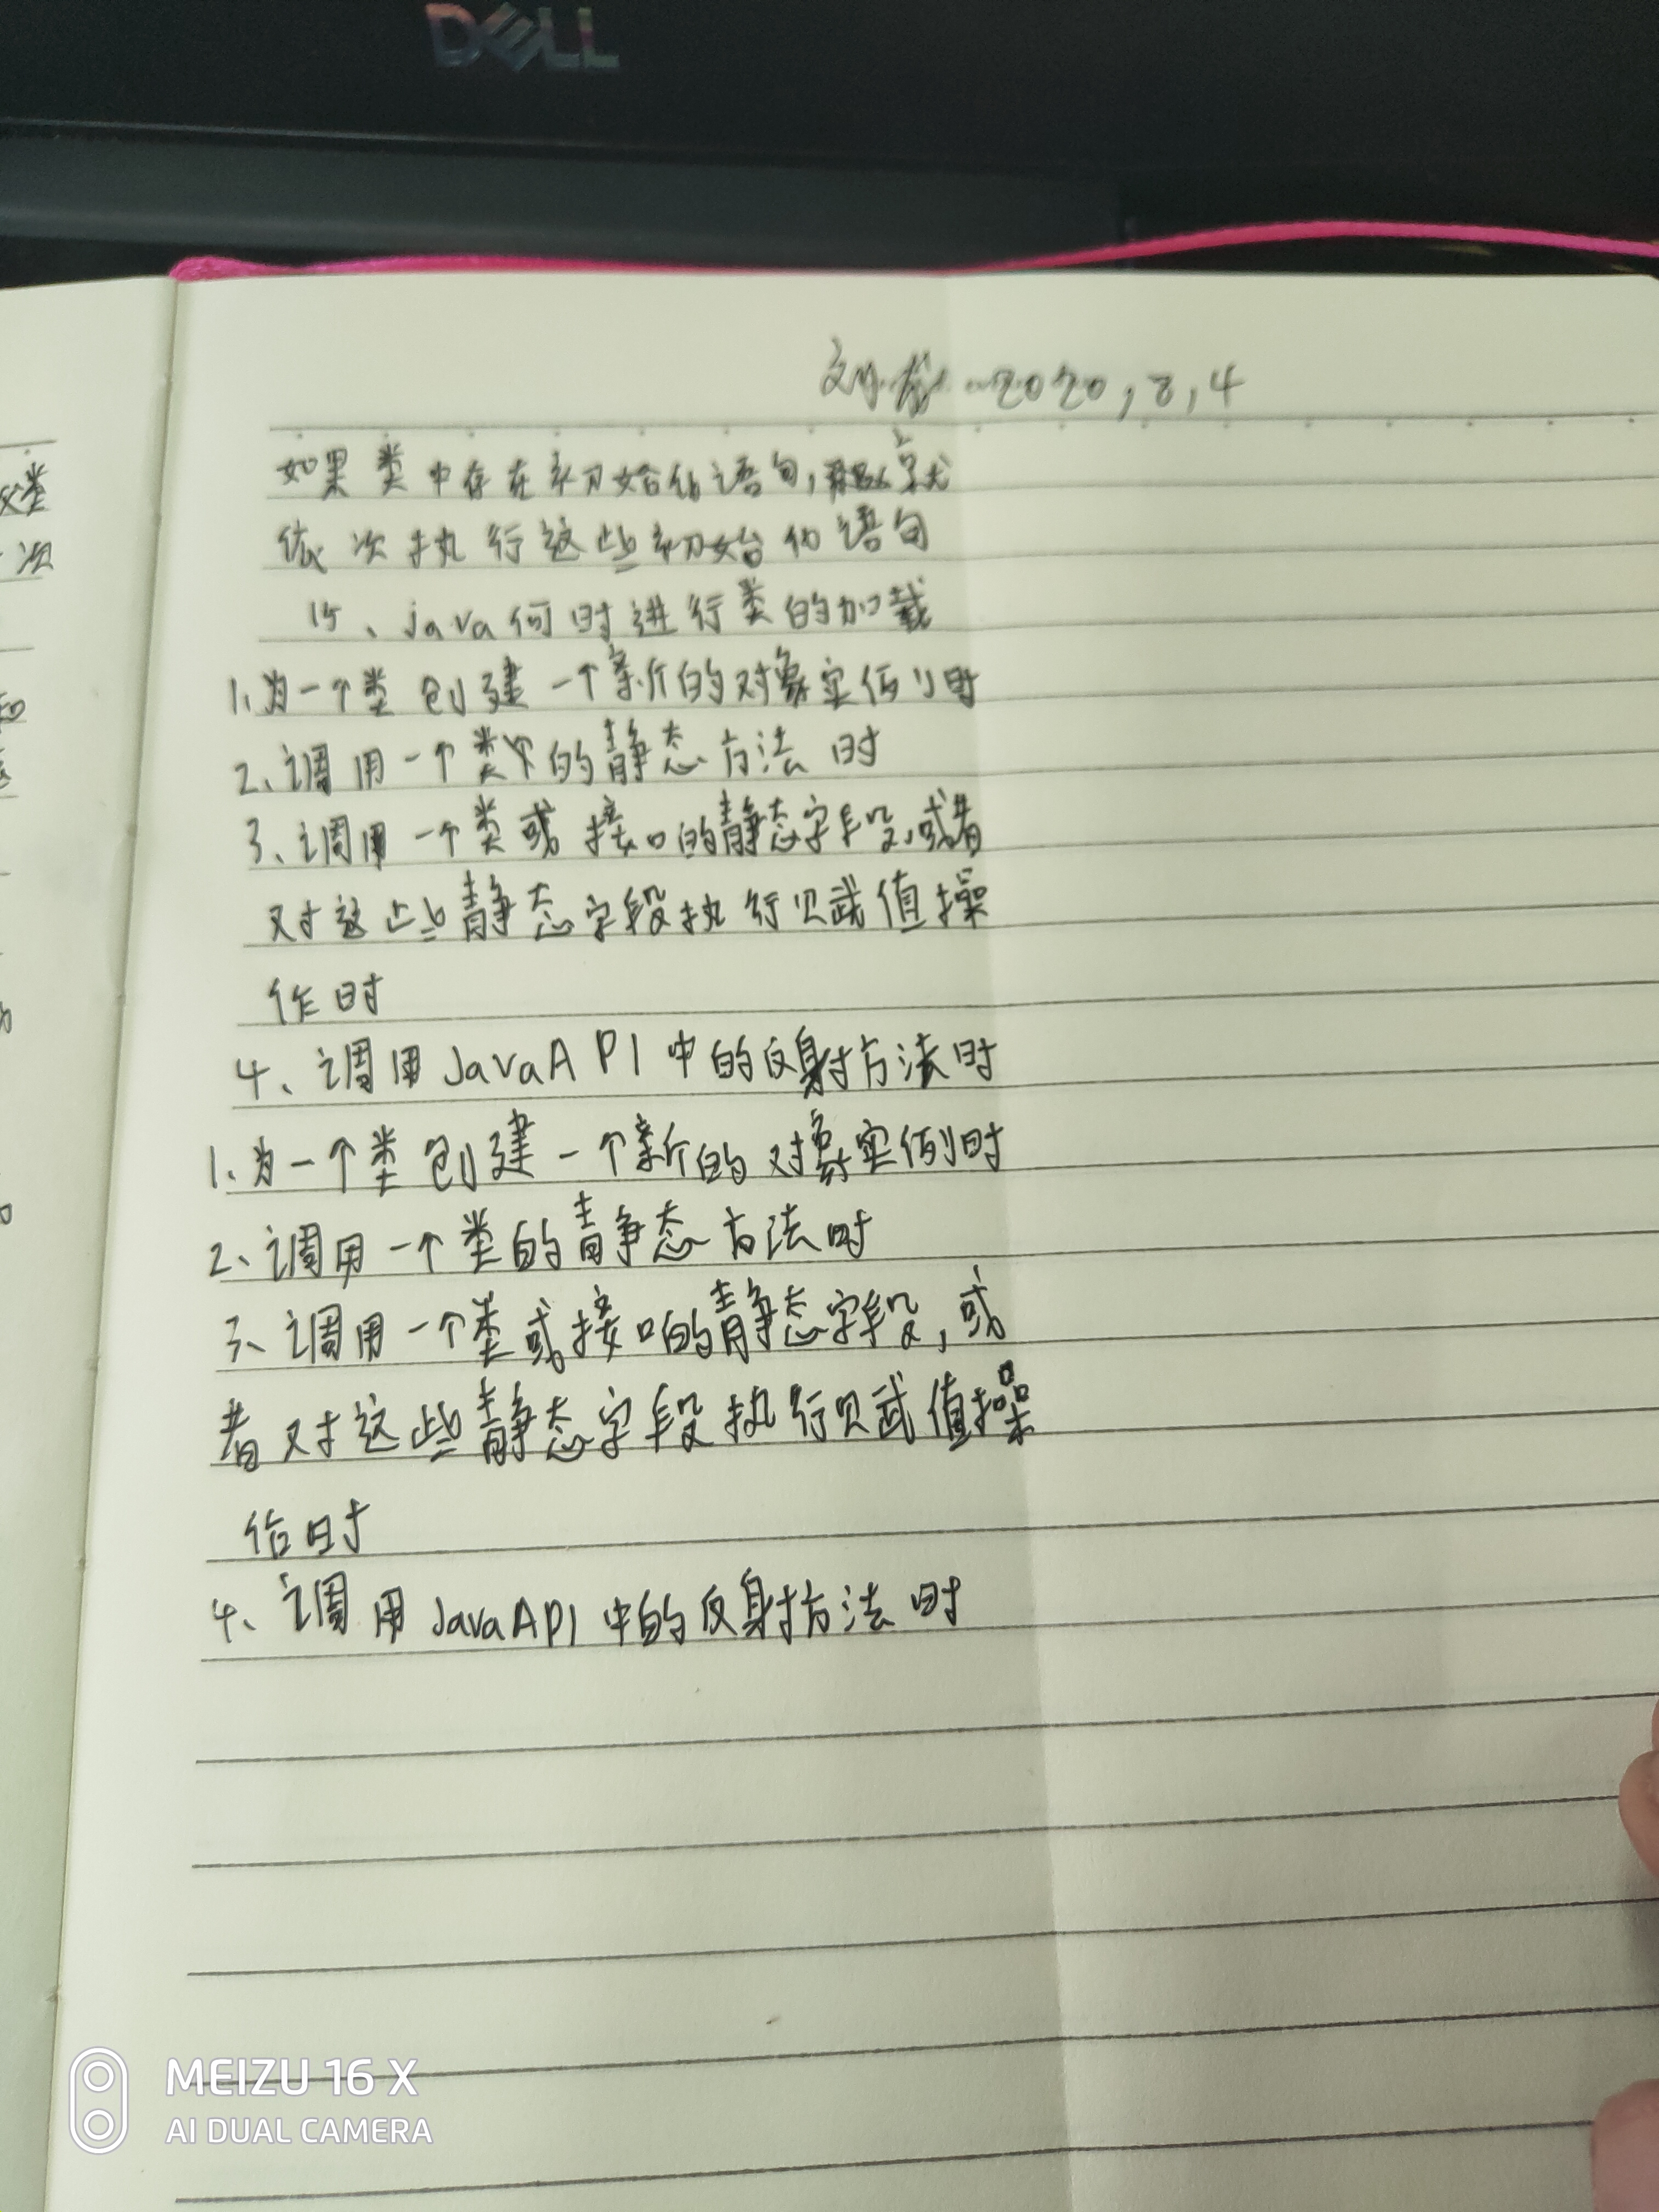 DELL
刘 2020,8,4
如果类中存在初始化语句,就
依次执行这些初始化语句
15、java何时进行类的加载
1、为一个类创建一个新的对象实例时
2、调用一个类的静态方法时
3、调用一个类或接口的静态字段,或者
对这些静态字段执行赋值操
作时
4、调用JavaAPI中的反射方法时
1、为一个类创建一个新的对象实例时
2、调用一个类的静态方法时
3、调用一个类或接口的静态字段,或
者对这些静态字段执行赋值操
作时
4、调用JavaAPI中的反射方法时
类
次
MEIZU 16 X
AI DUAL CAMERA